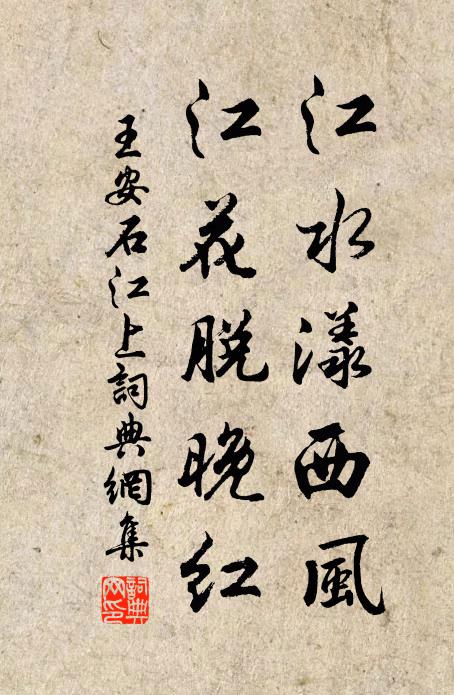 江水漾西風
江花脱晚紅
王安石江上詞典網集
詞典網印